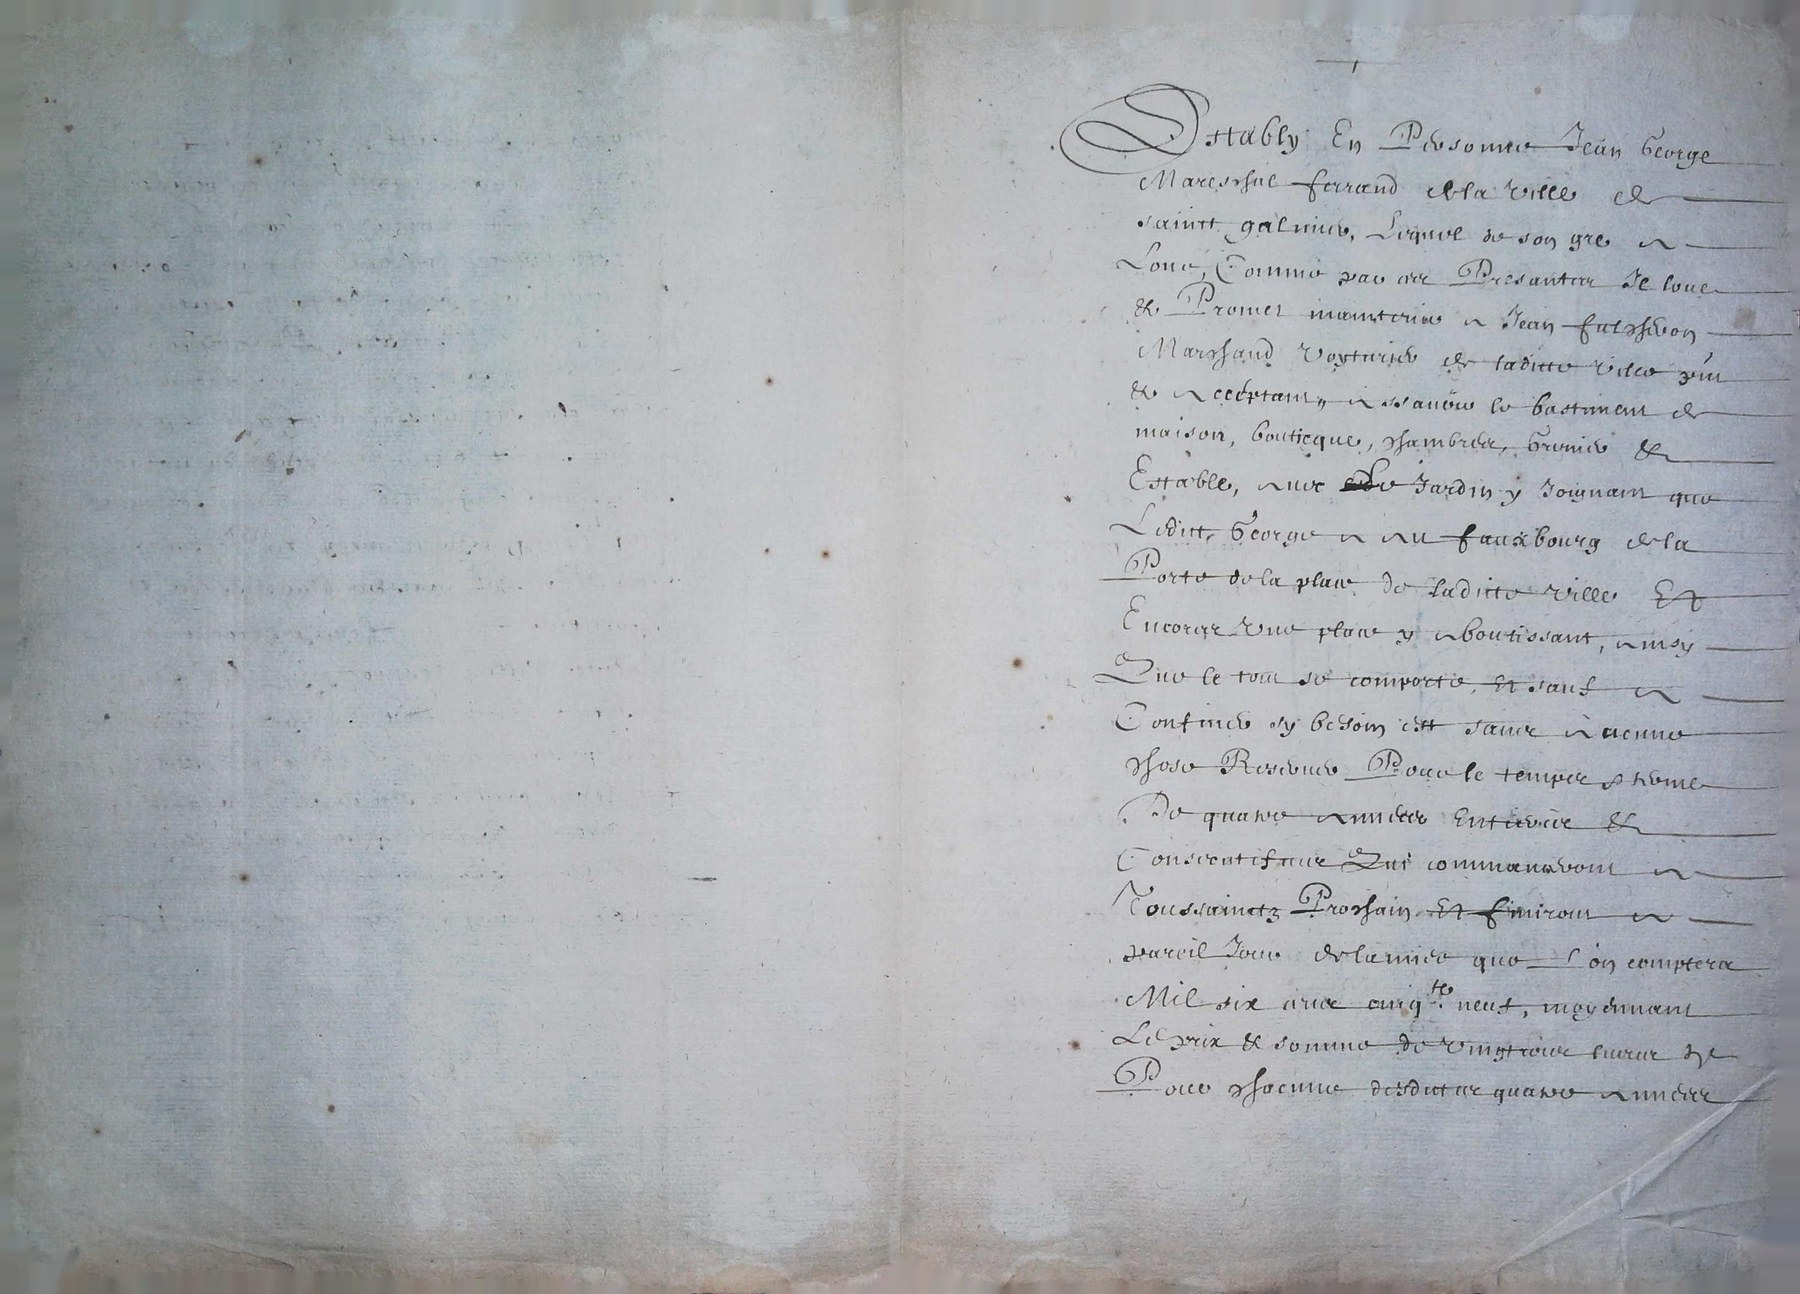 Estably En Personne Jean George
Mareschal ferrand de la ville de
sainct galmier, Lequel de son gre a
Loué, Comme par ces Presantes Il loue
& Promet maintenir a Jean
Marchand voyturier de laditte ville pnt
& acceptant, a ssavoir le bastiment de
maison, bouticque, chambres, Grenier &
Estable, avec Jardin y Joignant que
Ledict George a au fauxbourg de la
Porte de la place de laditte ville Et
Encores Une place y aboutissant, ainsy
Que le tout se comporte, Et sauf a
Confiner sy besoin est sans Aucune
chose Reserver Pour le temps & terme
De quatre années Entieres &
Consecutifues Qui commanseront a
Toussainctz Prochain Et finiront a
pareil Jour de lannée que L'on comptera
Mil six cens cinq.te neuf, moyennant
Le prix & somme de vingt livres
Pour chacune desdittes quatre années